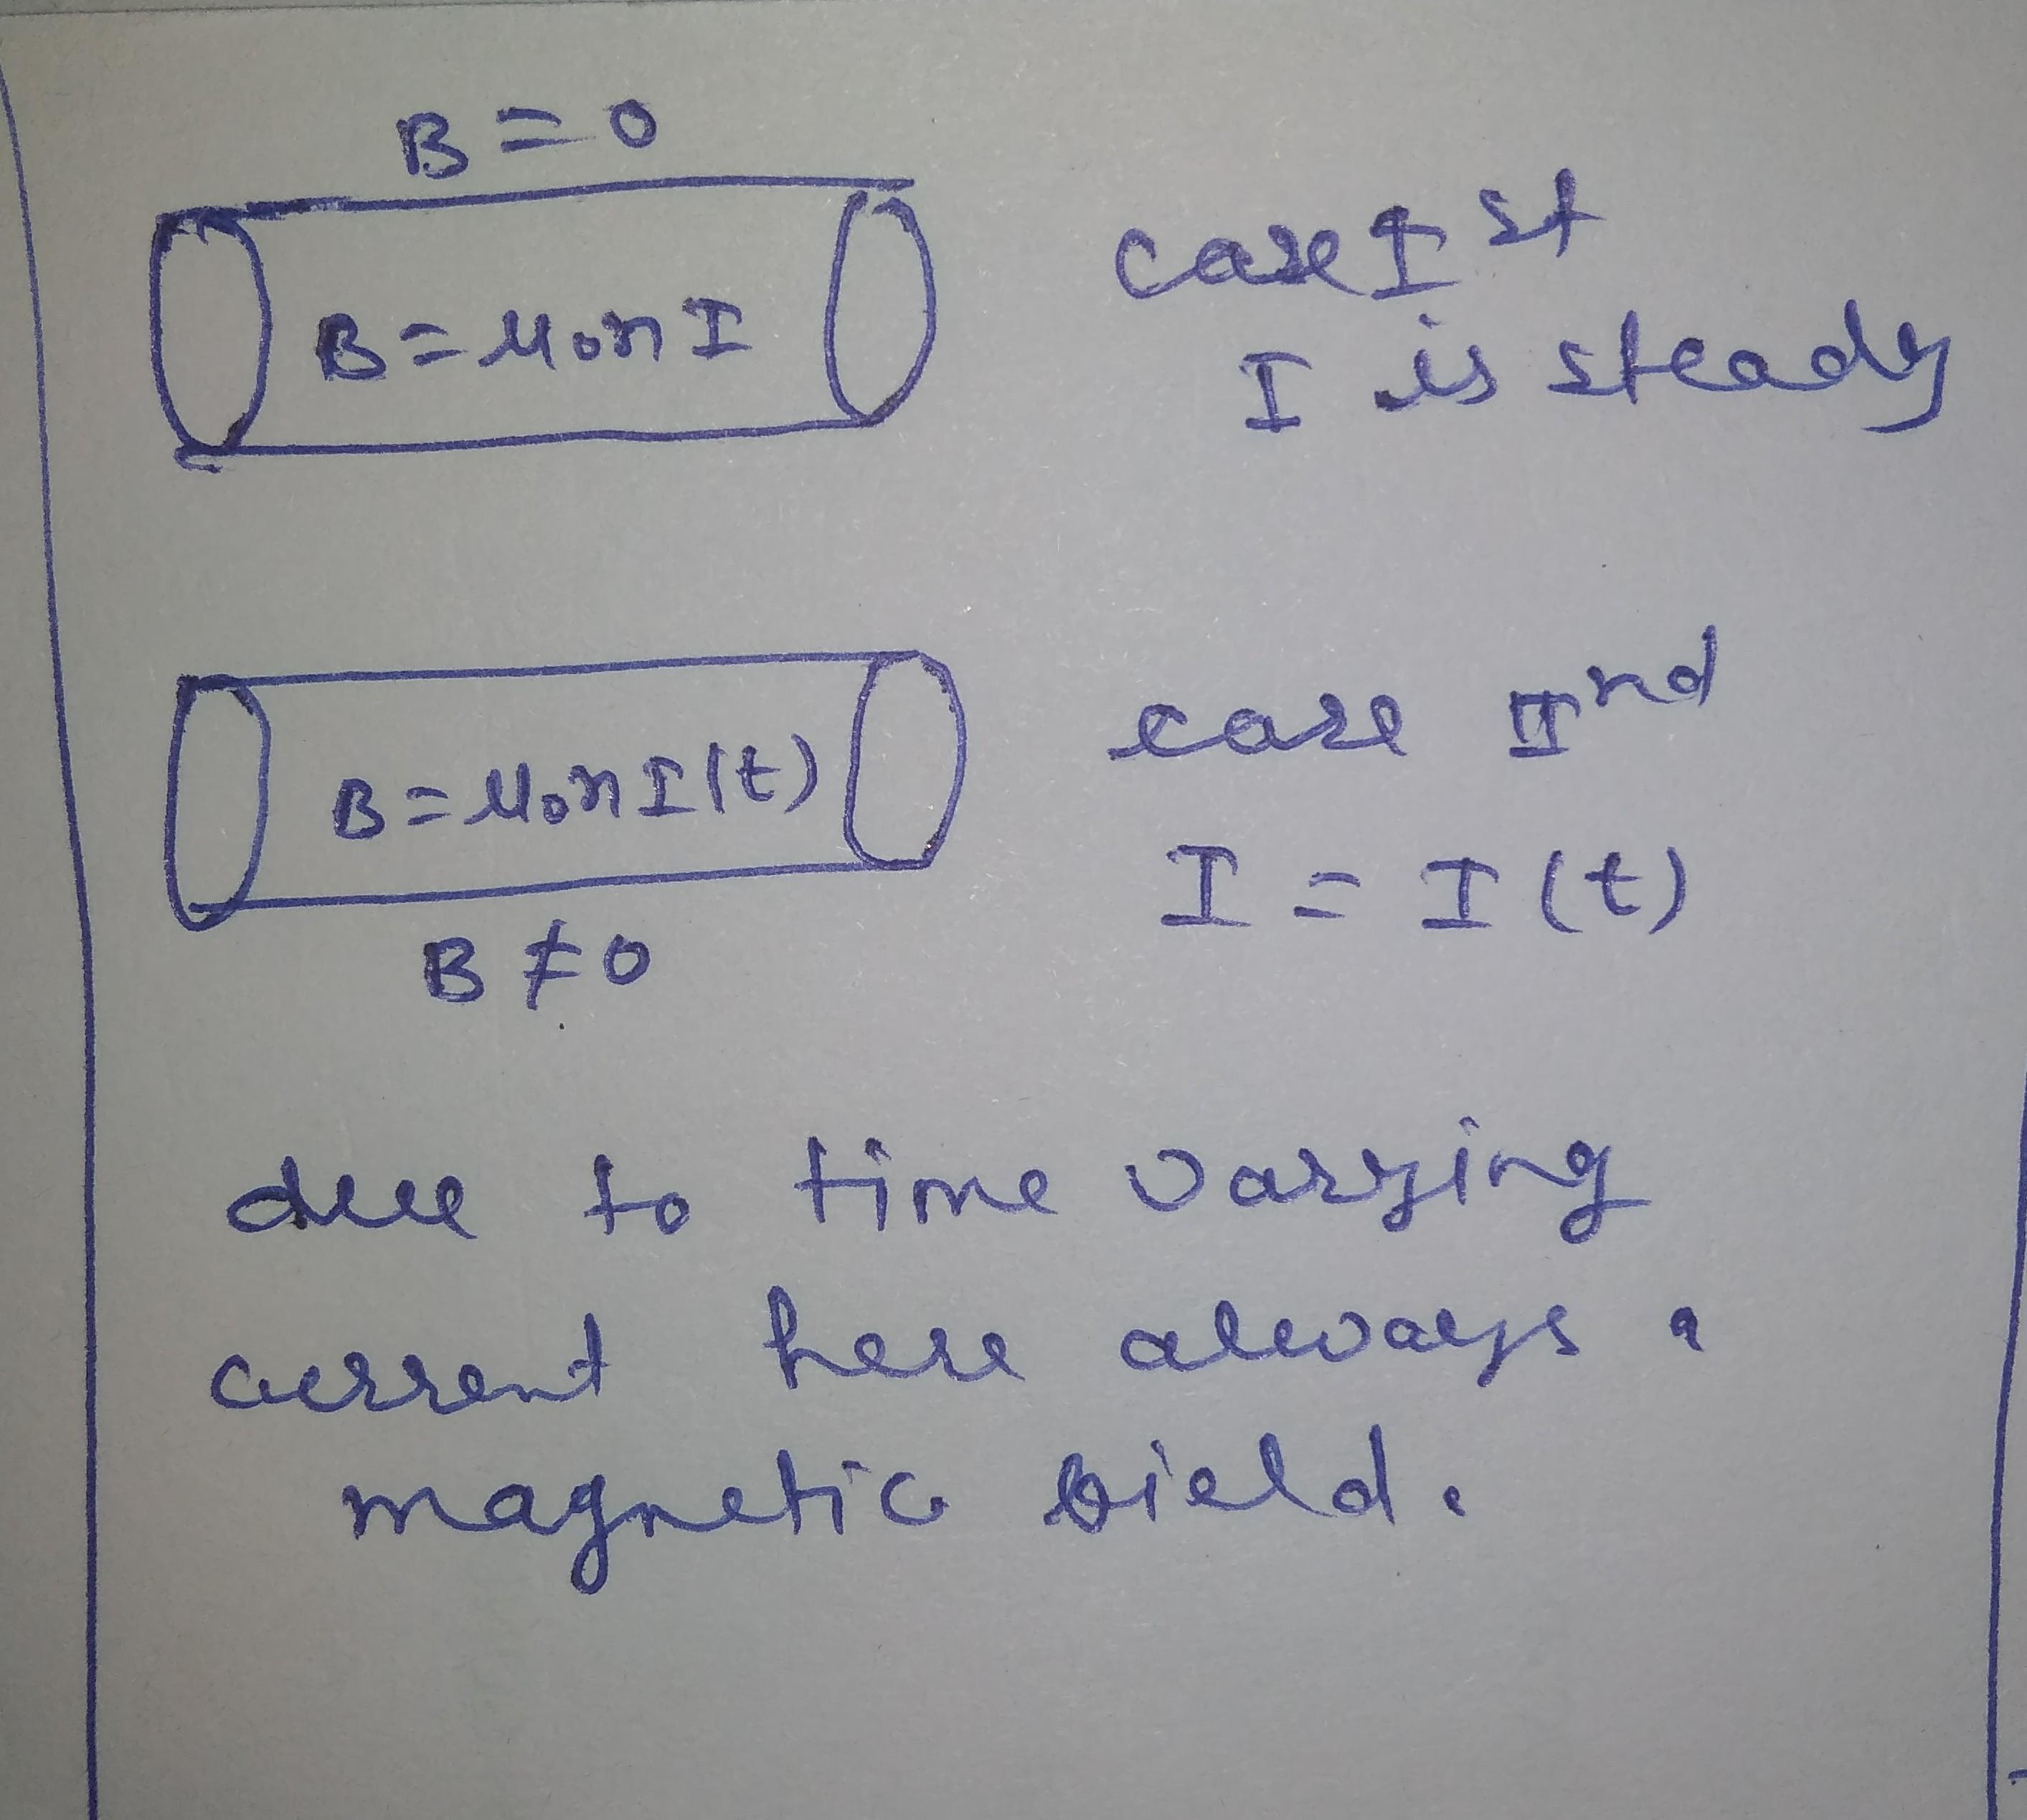 B = 0
B = μ₀nI
case Iˢᵗ
I is steady
B = μ₀nI(t)
case IIⁿᵈ
I = I(t)
B ≠ 0
due to time varying
current here always a
magnetic field.